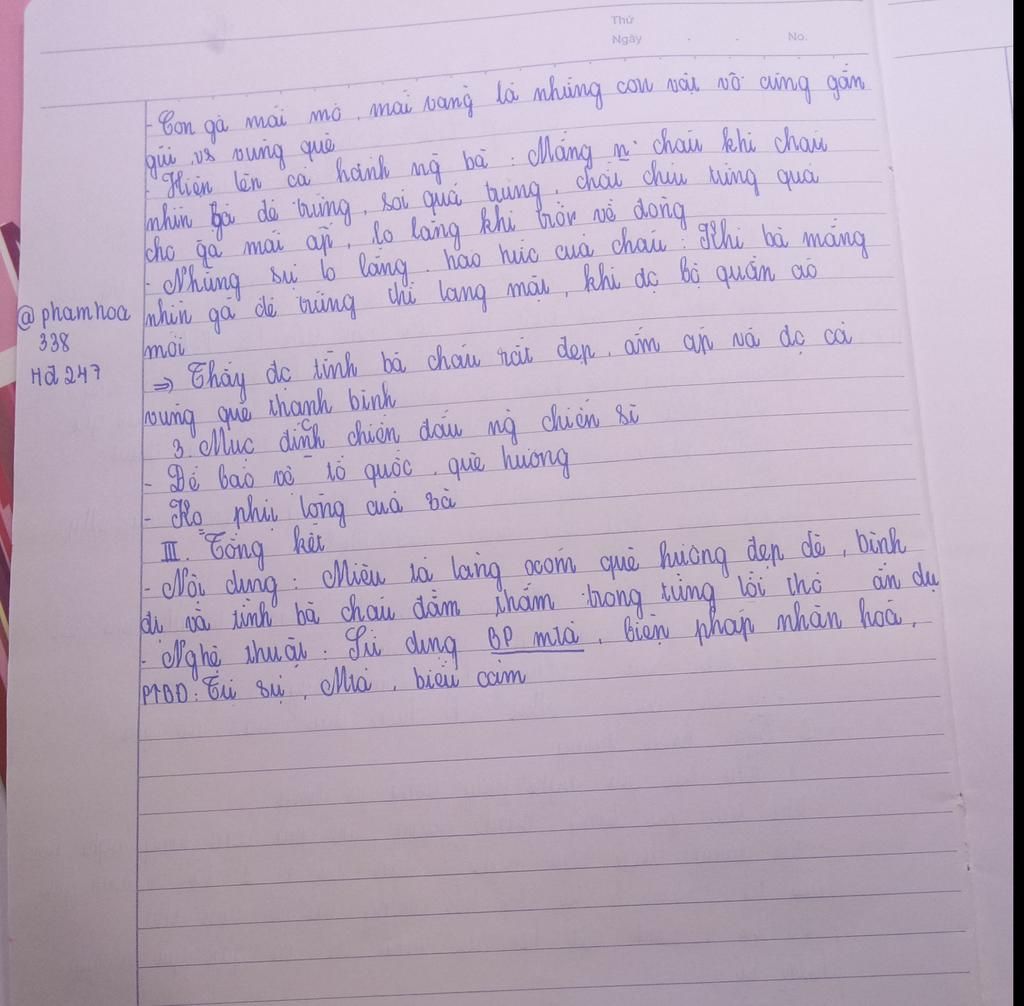 Thứ
Ngày . . No.
- Con gà mái mơ, mái vàng là những con vật vô cùng gần
gũi vs vùng quê
- Hiện lên cả hành ng bà: Mắng n: cháu khi cháu
nhìn gà đẻ trứng, soi quả trứng, chắt chiu từng quả
cho gà mái ấp, lo lắng khi trời về đông
- Những sự lo lắng, háo hức của cháu: Khi bà mắng
nhìn gà đẻ trứng thì lang mặt, khi đc bộ quần áo
mới
@phamhoa
338
Hđ 247
⇒ Thấy đc tình bà cháu rất đẹp, ấm áp và đc cả
vùng quê thanh bình
3. Mục đích chiến đấu ng chiến sĩ
- Để bảo vệ tổ quốc, quê hương
- Ko phụ lòng của bà
III. Tổng kết
- Nôi dung: Miêu tả làng xóm quê hương đẹp đẽ, bình
dị và tình bà cháu đằm thắm trong từng lời thơ ẩn dụ
- Nghệ thuật: Sử dụng BP mtả, biện pháp nhân hoá,
PTBĐ: Tự sự, Mtả, biểu cảm